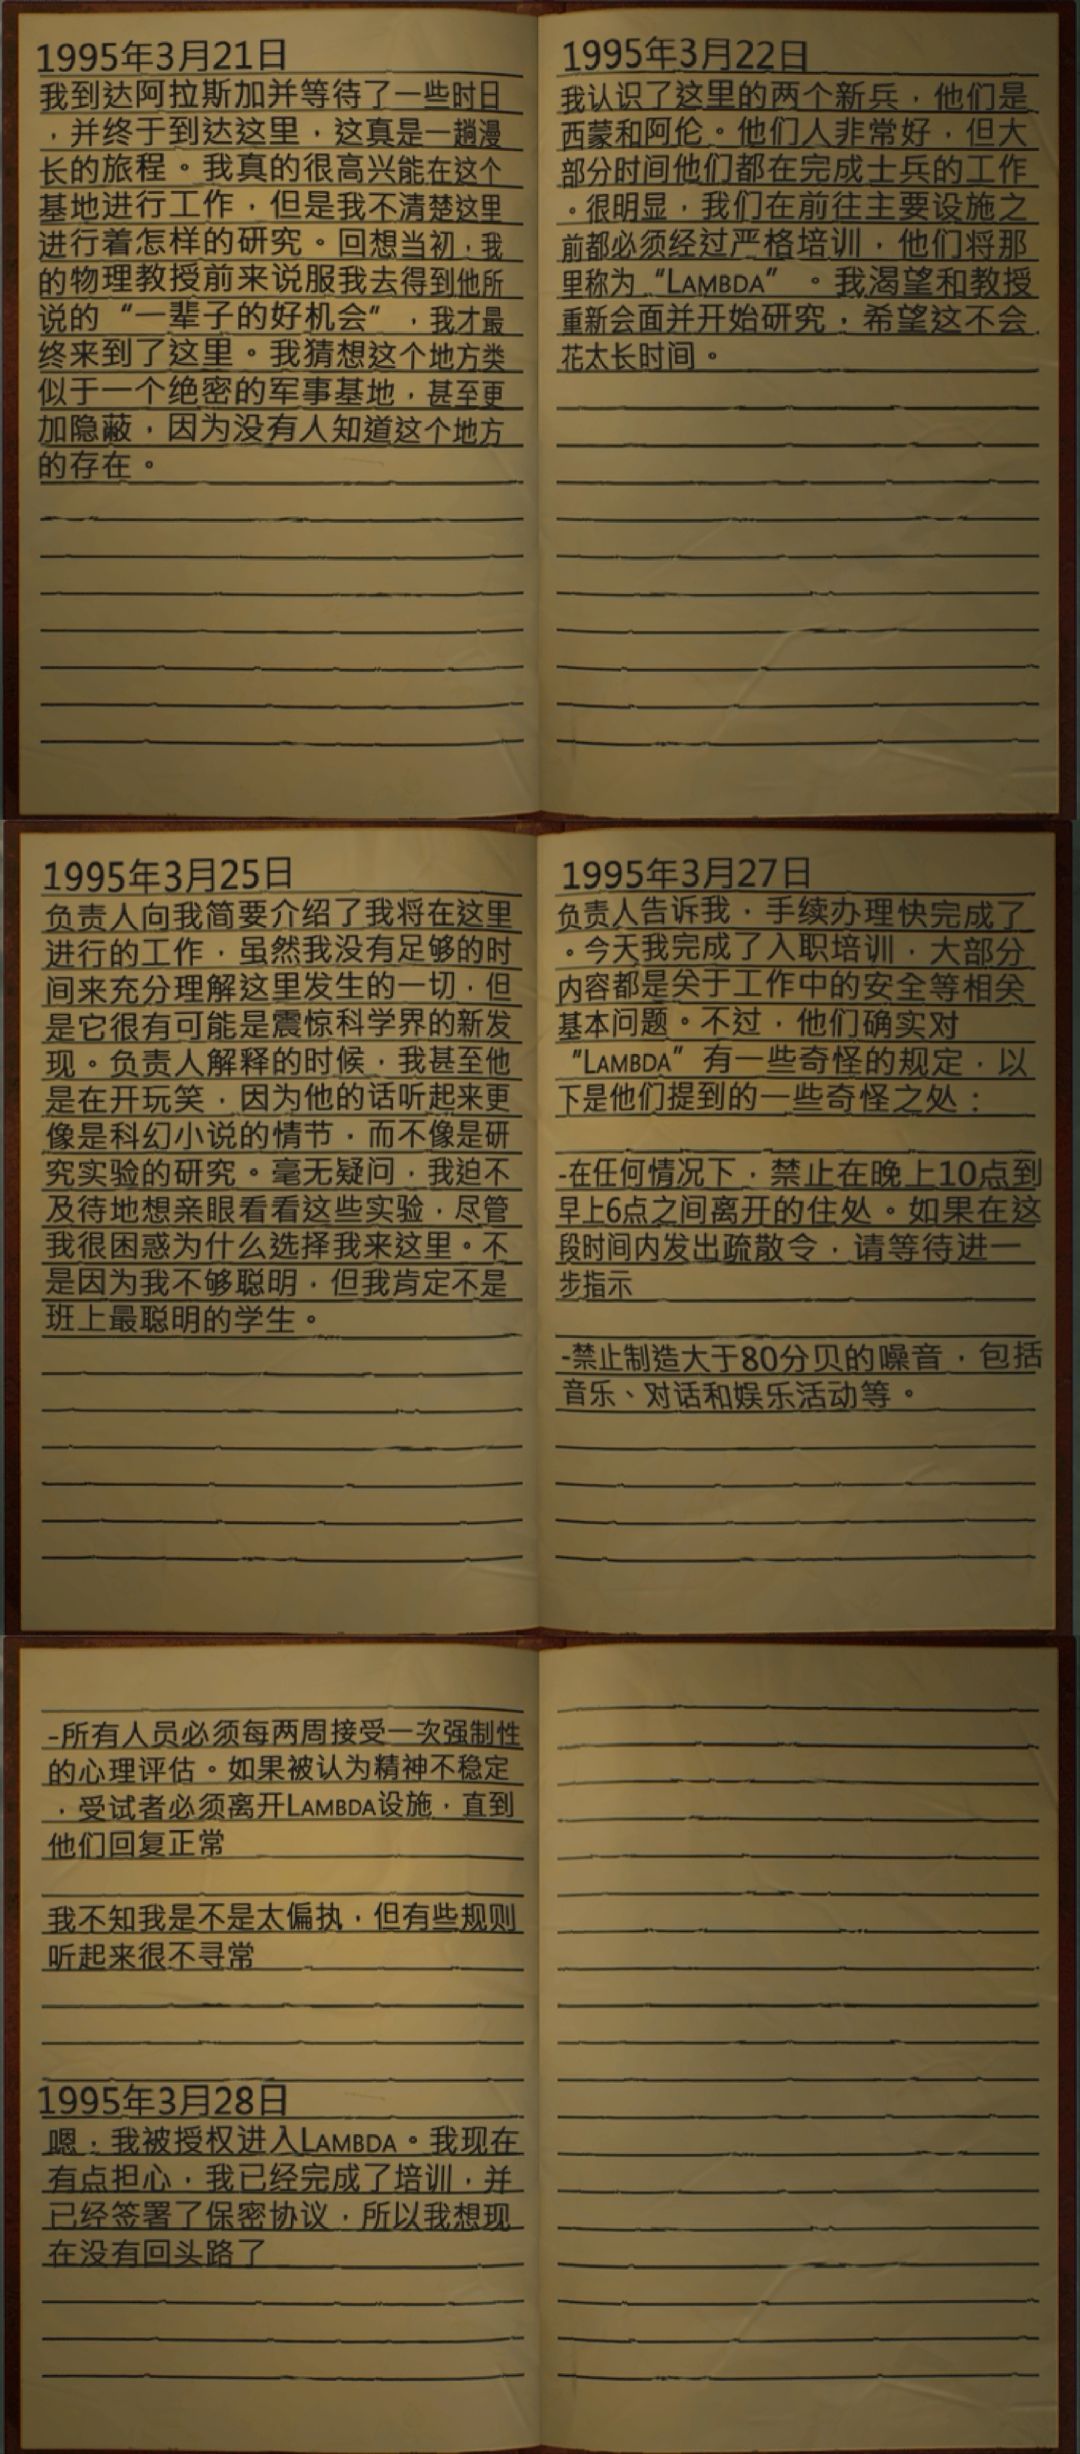 1995年3月21日
我到达阿拉斯加并等待了一些时日
，并终于到达这里，这真是一趟漫
长的旅程。我真的很高兴能在这个
基地进行工作，但是我不清楚这里
进行着怎样的研究。回想当初，我
的物理教授前来说服我去得到他所
说的“一辈子的好机会”，我才最
终来到了这里。我猜想这个地方类
似于一个绝密的军事基地，甚至更
加隐蔽，因为没有人知道这个地方
的存在。
1995年3月22日
我认识了这里的两个新兵，他们是
西蒙和阿伦。他们人非常好，但大
部分时间他们都在完成士兵的工作
。很明显，我们在前往主要设施之
前都必须经过严格培训，他们将那
里称为“LAMBDA”。我渴望和教授
重新会面并开始研究，希望这不会
花太长时间。
1995年3月25日
负责人向我简要介绍了我将在这里
进行的工作，虽然我没有足够的时
间来充分理解这里发生的一切，但
是它很有可能是震惊科学界的新发
现。负责人解释的时候，我甚至他
是在开玩笑，因为他的话听起来更
像是科幻小说的情节，而不像是研
究实验的研究。毫无疑问，我迫不
及待地想亲眼看看这些实验，尽管
我很困惑为什么选择我来这里。不
是因为我不够聪明，但我肯定不是
班上最聪明的学生。
1995年3月27日
负责人告诉我，手续办理快完成了
。今天我完成了入职培训，大部分
内容都是关于工作中的安全等相关
基本问题。不过，他们确实对
“LAMBDA”有一些奇怪的规定，以
下是他们提到的一些奇怪之处：
-在任何情况下，禁止在晚上10点到
早上6点之间离开的住处。如果在这
段时间内发出疏散令，请等待进一
步指示
-禁止制造大于80分贝的噪音，包括
音乐、对话和娱乐活动等。
-所有人员必须每两周接受一次强制性
的心理评估。如果被认为精神不稳定
，受试者必须离开LAMBDA设施，直到
他们回复正常
我不知我是不是太偏执，但有些规则
听起来很不寻常
1995年3月28日
嗯，我被授权进入LAMBDA。我现在
有点担心，我已经完成了培训，并
已经签署了保密协议，所以我想现
在没有回头路了